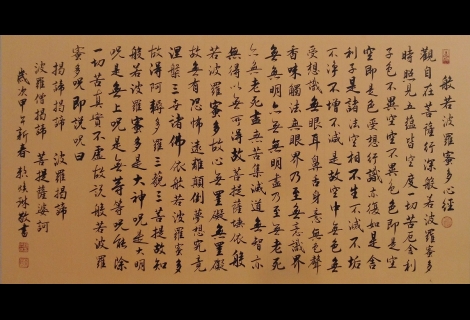 般若波羅蜜多心經
觀自在菩薩行深般若波羅蜜多
時照見五蘊皆空度一切苦厄舍利
子色不異空空不異色色即是空
空即是色受想行識亦復如是舍
利子是諸法空相不生不滅不垢
不淨不增不減是故空中無色無
受想行識無眼耳鼻舌身意無色聲
香味觸法無眼界乃至無意識界
無無明亦無無明盡乃至無老死
亦無老死盡無苦集滅道無智亦
無得以無所得故菩提薩埵依般
若波羅蜜多故心無罣礙無罣礙
故無有恐怖遠離顛倒夢想究竟
涅槃三世諸佛依般若波羅蜜多
故得阿耨多羅三藐三菩提故知
般若波羅蜜多是大神咒是大明
咒是無上咒是無等等咒能除
一切苦真實不虛故說般若波羅
蜜多咒即說咒曰
揭諦揭諦 波羅揭諦
波羅僧揭諦 菩提薩婆訶
歲次甲午新春 敬書